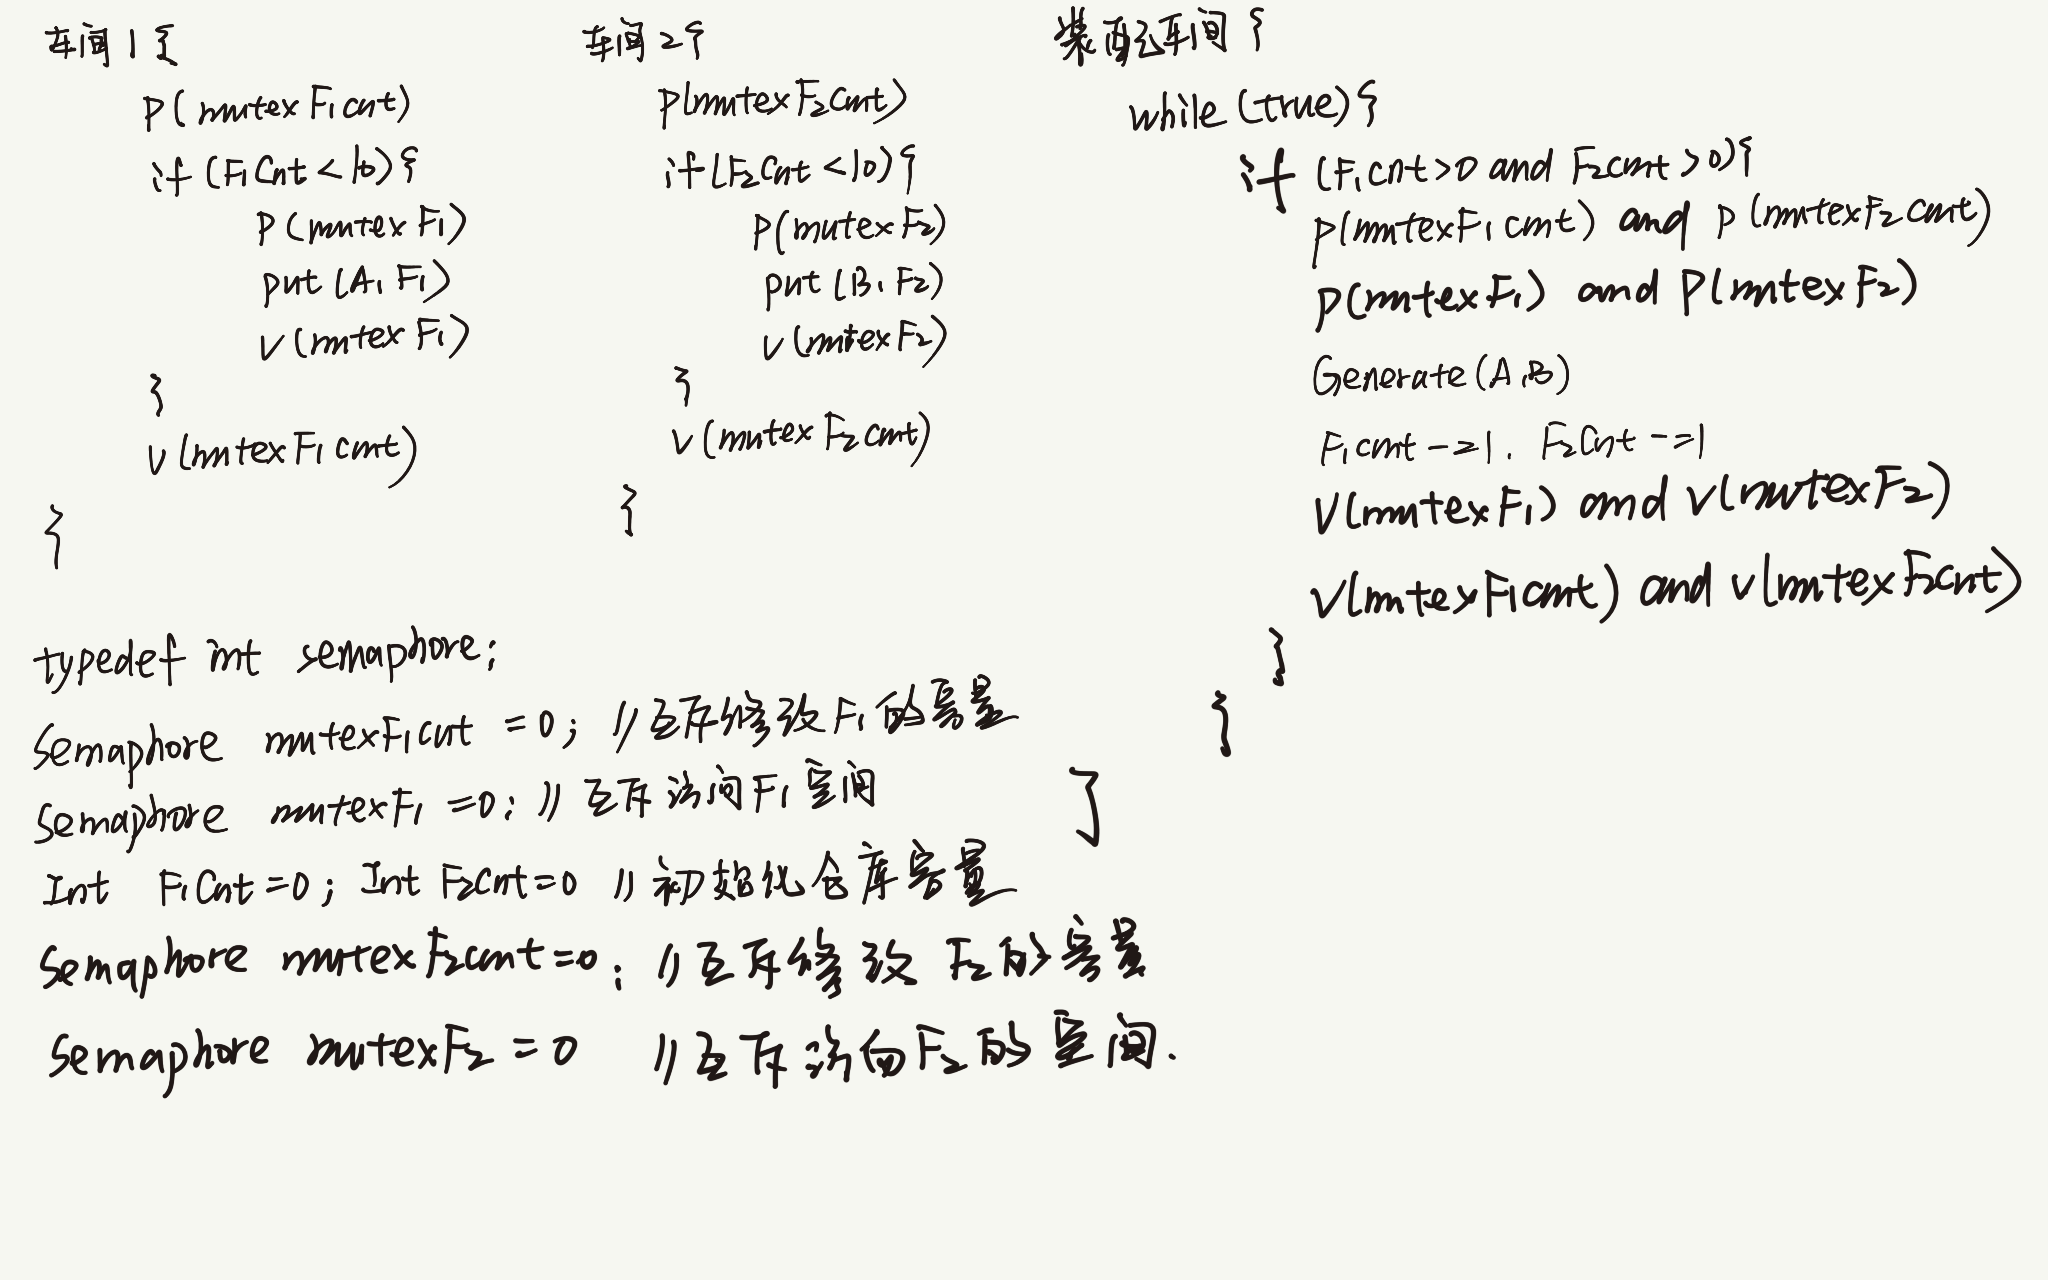 车间1{
P(mutexF1cnt)
if(F1Cnt<10){
P(mutexF1)
put(A,F1)
V(mutexF1)
}
V(mutexF1cnt)
}
车间2{
P(mutexF2Cnt)
if(F2Cnt<10){
P(mutexF2)
put(B,F2)
V(mutexF2)
}
V(mutexF2cnt)
}
装配车间{
while(true){
if (F1cnt>0 and F2cnt>0){
P(mutexF1cnt) and P(mutexF2cnt)
P(mutexF1) and P(mutexF2)
Generate(A,B)
F1cnt-=1, F2Cnt-=1
V(mutexF1) and V(mutexF2)
V(mutexF1cnt) and V(mutexF2cnt)
}
}
}
typedef int semaphore;
Semaphore mutexF1cnt = 0; //互斥修改F1的容量
Semaphore mutexF1 =0; //互斥访问F1空间
Int F1Cnt=0; Int F2cnt=0 //初始化仓库容量
Semaphore mutexF2cnt=0; //互斥修改F2的容量
Semaphore mutexF2 = 0 //互斥访问F2的空间.